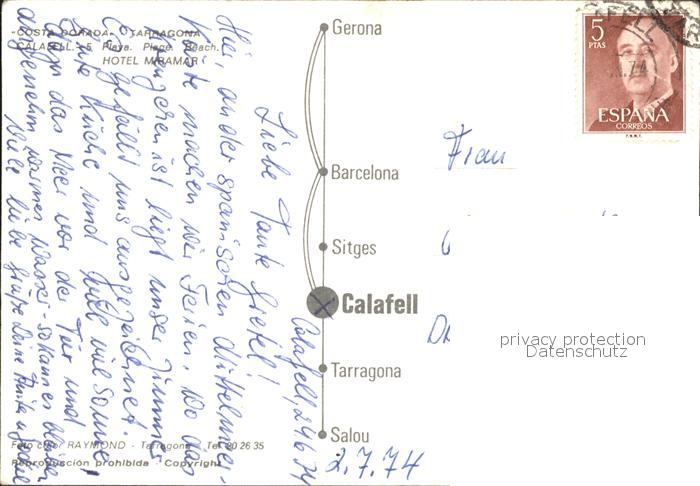 -COSTA DORADA- TARRAGONA
CALAFELL.- 5 Playa. Plage. Beach.
HOTEL MIRAMAR
Calafell, 29.6.74
Liebe Tante Gretel!
Hier, an der spanischen Mittelmeer-
küste machen wir Ferien. Wo das
ist liegt unser Zimmer
Es gefällt uns ausgezeichnet.
Gute Küche und viel Sonne!
das Meer vor der Tür und
angenehm warmes Wasser - so kann es bleiben
Viele liebe Grüße Deine Anita u.
Foto color RAYMOND - Tarragona Tel 20 26 35
Reproducción prohibida - Copyright
Gerona
Barcelona
Sitges
Calafell
Tarragona
Salou
2.7.74
5
PTAS
ESPAÑA
CORREOS
F.N.M.T.
Frau
privacy protection
Datenschutz